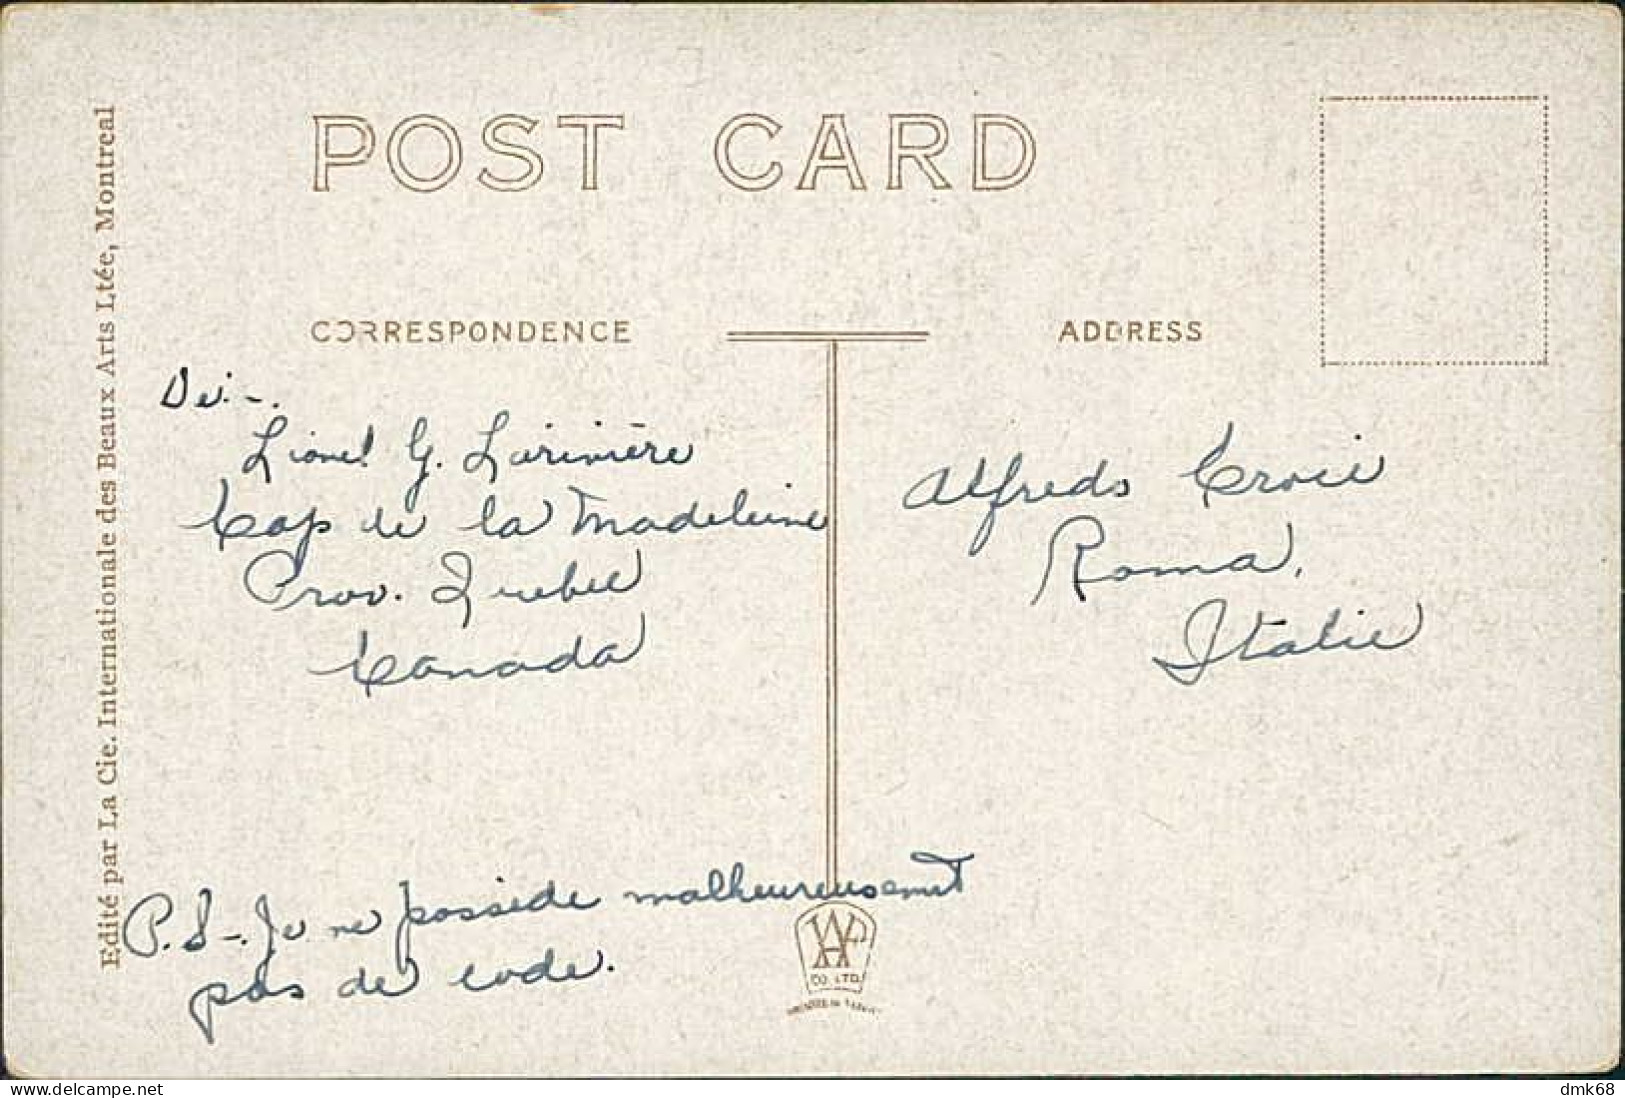 POST CARD
CORRESPONDENCE
ADDRESS
Edité par La Cie. Internationale des Beaux Arts Ltée, Montreal
De:-.
Lionel G. Larivière
Cap de la Madeleine
Prov. Quebec
Canada
Alfredo Croci
Roma,
Italie
P.S-. Je ne possède malheureusement
pas de code.
CO. LTD.
www.delcampe.net
dmk68